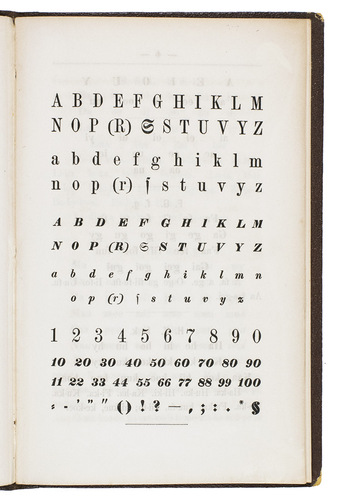 A B D E F G H I K L M
N O P (R) 𝔖 S T U V Y Z
a b d e f g h i k l m
n o p (r) ſ s t u v y z
A B D E F G H I K L M
N O P (R) 𝔖 S T U V Y Z
a b d e f g h i k l m n
o p (r) ſ s t u v y z
1 2 3 4 5 6 7 8 9 0
10 20 30 40 50 60 70 80 90 100
11 22 33 44 55 66 77 88 99 100
⸗ - ’ ” “ () ! ? — , ; : . * §